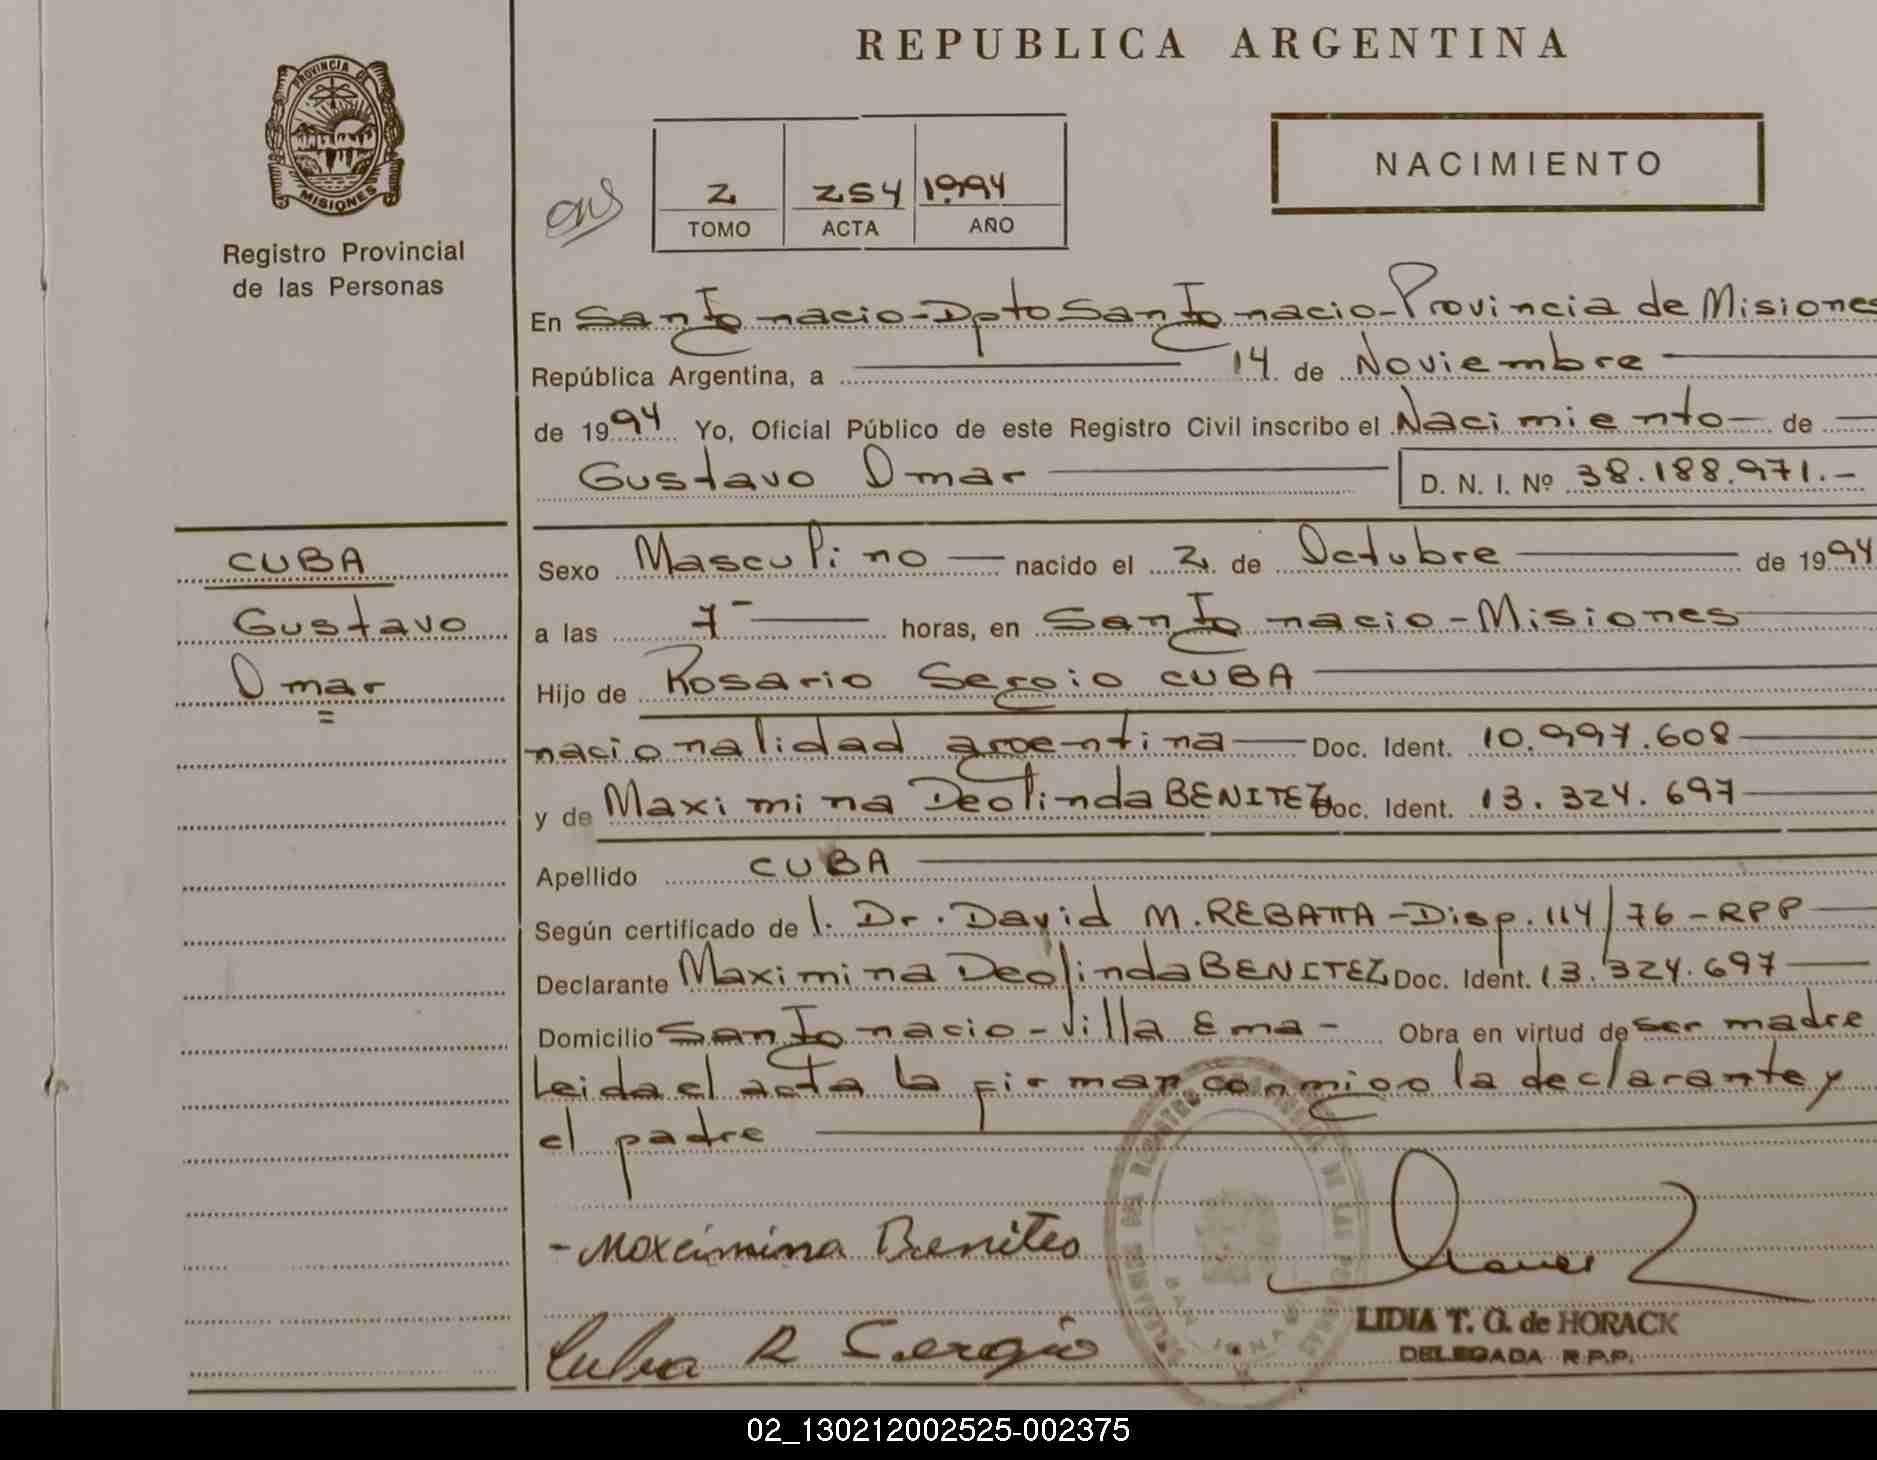 REPUBLICA ARGENTINA
PROVINCIA DE
MISIONES
Registro Provincial
de las Personas
2 254 1994
TOMO ACTA AÑO
NACIMIENTO
En San Ignacio - Dpto San Ignacio - Provincia de Misiones
República Argentina, a 14 de Noviembre
de 1994 Yo, Oficial Público de este Registro Civil inscribo el Nacimiento de
Gustavo Omar D. N. I. Nº 38.188.971.-
CUBA
Gustavo
Omar
Sexo Masculino nacido el 2 de Octubre de 1994
a las 7 horas, en San Ignacio - Misiones
Hijo de Rosario Sergio CUBA
nacionalidad argentina Doc. Ident. 10.997.608
y de Maximina Deolinda BENITEZ Doc. Ident. 13.324.697
Apellido CUBA
Según certificado de l. Dr. David M. REBATTA - Disp. 114/76 - RPP
Declarante Maximina Deolinda BENITEZ Doc. Ident. 13.324.697
Domicilio San Ignacio - Villa Ema - Obra en virtud de ser madre
Leida el acta la firman conmigo la declarante y
el padre
- Maxcimina Benites
Cuba R Sergio
LIDIA T. G. de HORACK
DELEGADA R.P.P.
02_130212002525-002375